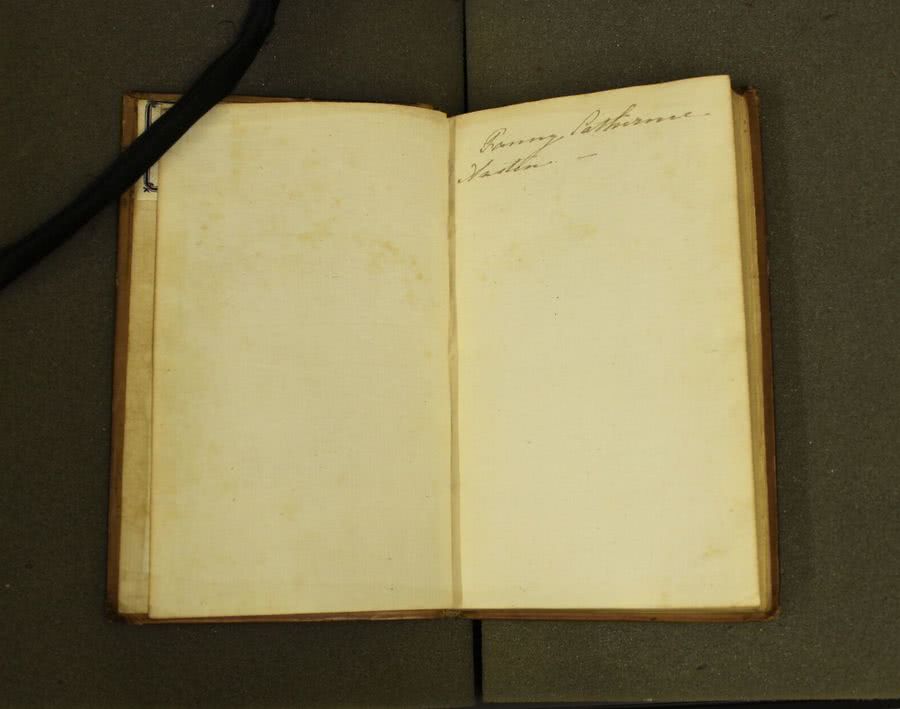 Fanny Catherine
Austen. —